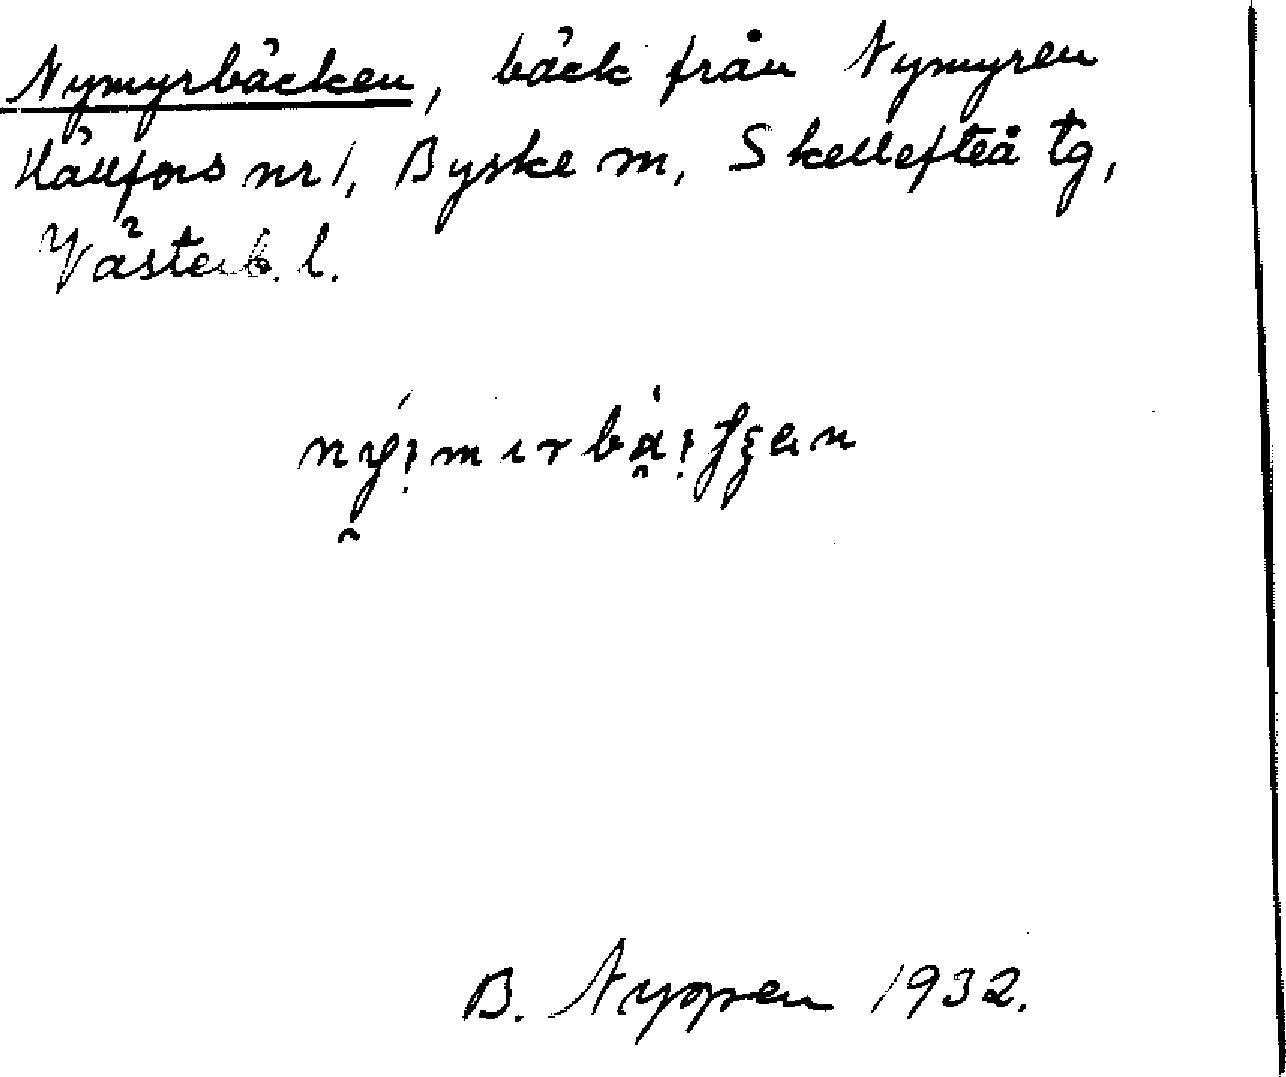 Nymyrbäcken, bäck från Nymyren
Hällfors nr 1, Byske sn, Skellefteå tg,
Västerb. l.
B. Nyppen 1932.